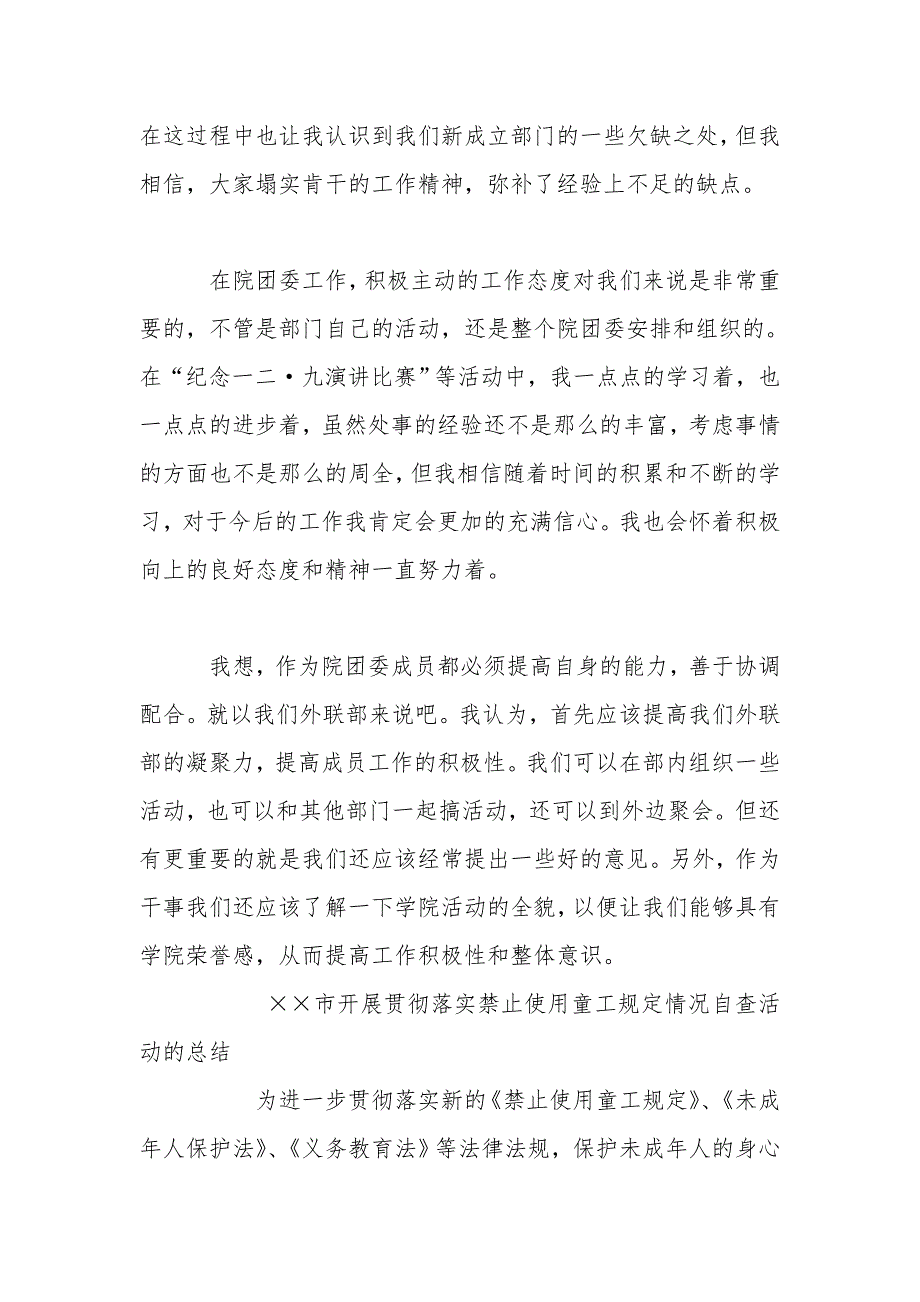 在这过程中也让我认识到我们新成立部门的一些欠缺之处，但我
相信，大家塌实肯干的工作精神，弥补了经验上不足的缺点。
在院团委工作，积极主动的工作态度对我们来说是非常重
要的，不管是部门自己的活动，还是整个院团委安排和组织的。
在“纪念一二·九演讲比赛”等活动中，我一点点的学习着，也
一点点的进步着，虽然处事的经验还不是那么的丰富，考虑事情
的方面也不是那么的周全，但我相信随着时间的积累和不断的学
习，对于今后的工作我肯定会更加的充满信心。我也会怀着积极
向上的良好态度和精神一直努力着。
我想，作为院团委成员都必须提高自身的能力，善于协调
配合。就以我们外联部来说吧。我认为，首先应该提高我们外联
部的凝聚力，提高成员工作的积极性。我们可以在部内组织一些
活动，也可以和其他部门一起搞活动，还可以到外边聚会。但还
有更重要的就是我们还应该经常提出一些好的意见。另外，作为
干事我们还应该了解一下学院活动的全貌，以便让我们能够具有
学院荣誉感，从而提高工作积极性和整体意识。
××市开展贯彻落实禁止使用童工规定情况自查活
动的总结
为进一步贯彻落实新的《禁止使用童工规定》、《未成
年人保护法》、《义务教育法》等法律法规，保护未成年人的身心